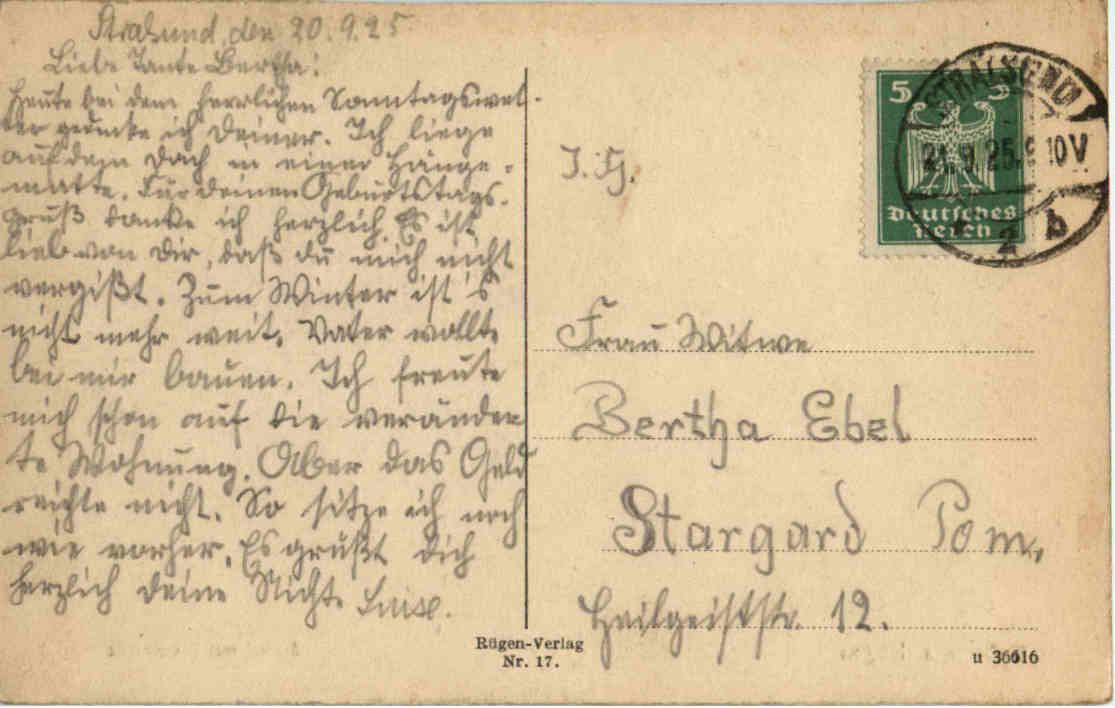 Stralsund, den 20.9.25
Liebe Tante Bertha!
Heute bei dem herrlichen Sonntagswet-
ter gedenke ich Deiner. Ich liege
auf dem Dach in einer Hänge-
matte. Für deinen Geburtstags-
gruß danke ich herzlich. Es ist
lieb von Dir, daß du mich nicht
vergißt. Zum Winter ist's
nicht mehr weit. Vater wollte
bei mir bauen. Ich freute
mich schon auf die veränder
te Wohnung. Aber das Geld
reichte nicht. So sitze ich noch
wie vorher. Es grüßt Dich
herzlich deine Nichte Luise.
J. G.
5 5
Deutsches
Reich
STRALSUND
21.9.25. 10V
2 b
Frau Witwe
Bertha Ebel
Stargard Pom.
Heilgeiststr. 12.
Rügen-Verlag
Nr. 17.
u 36616